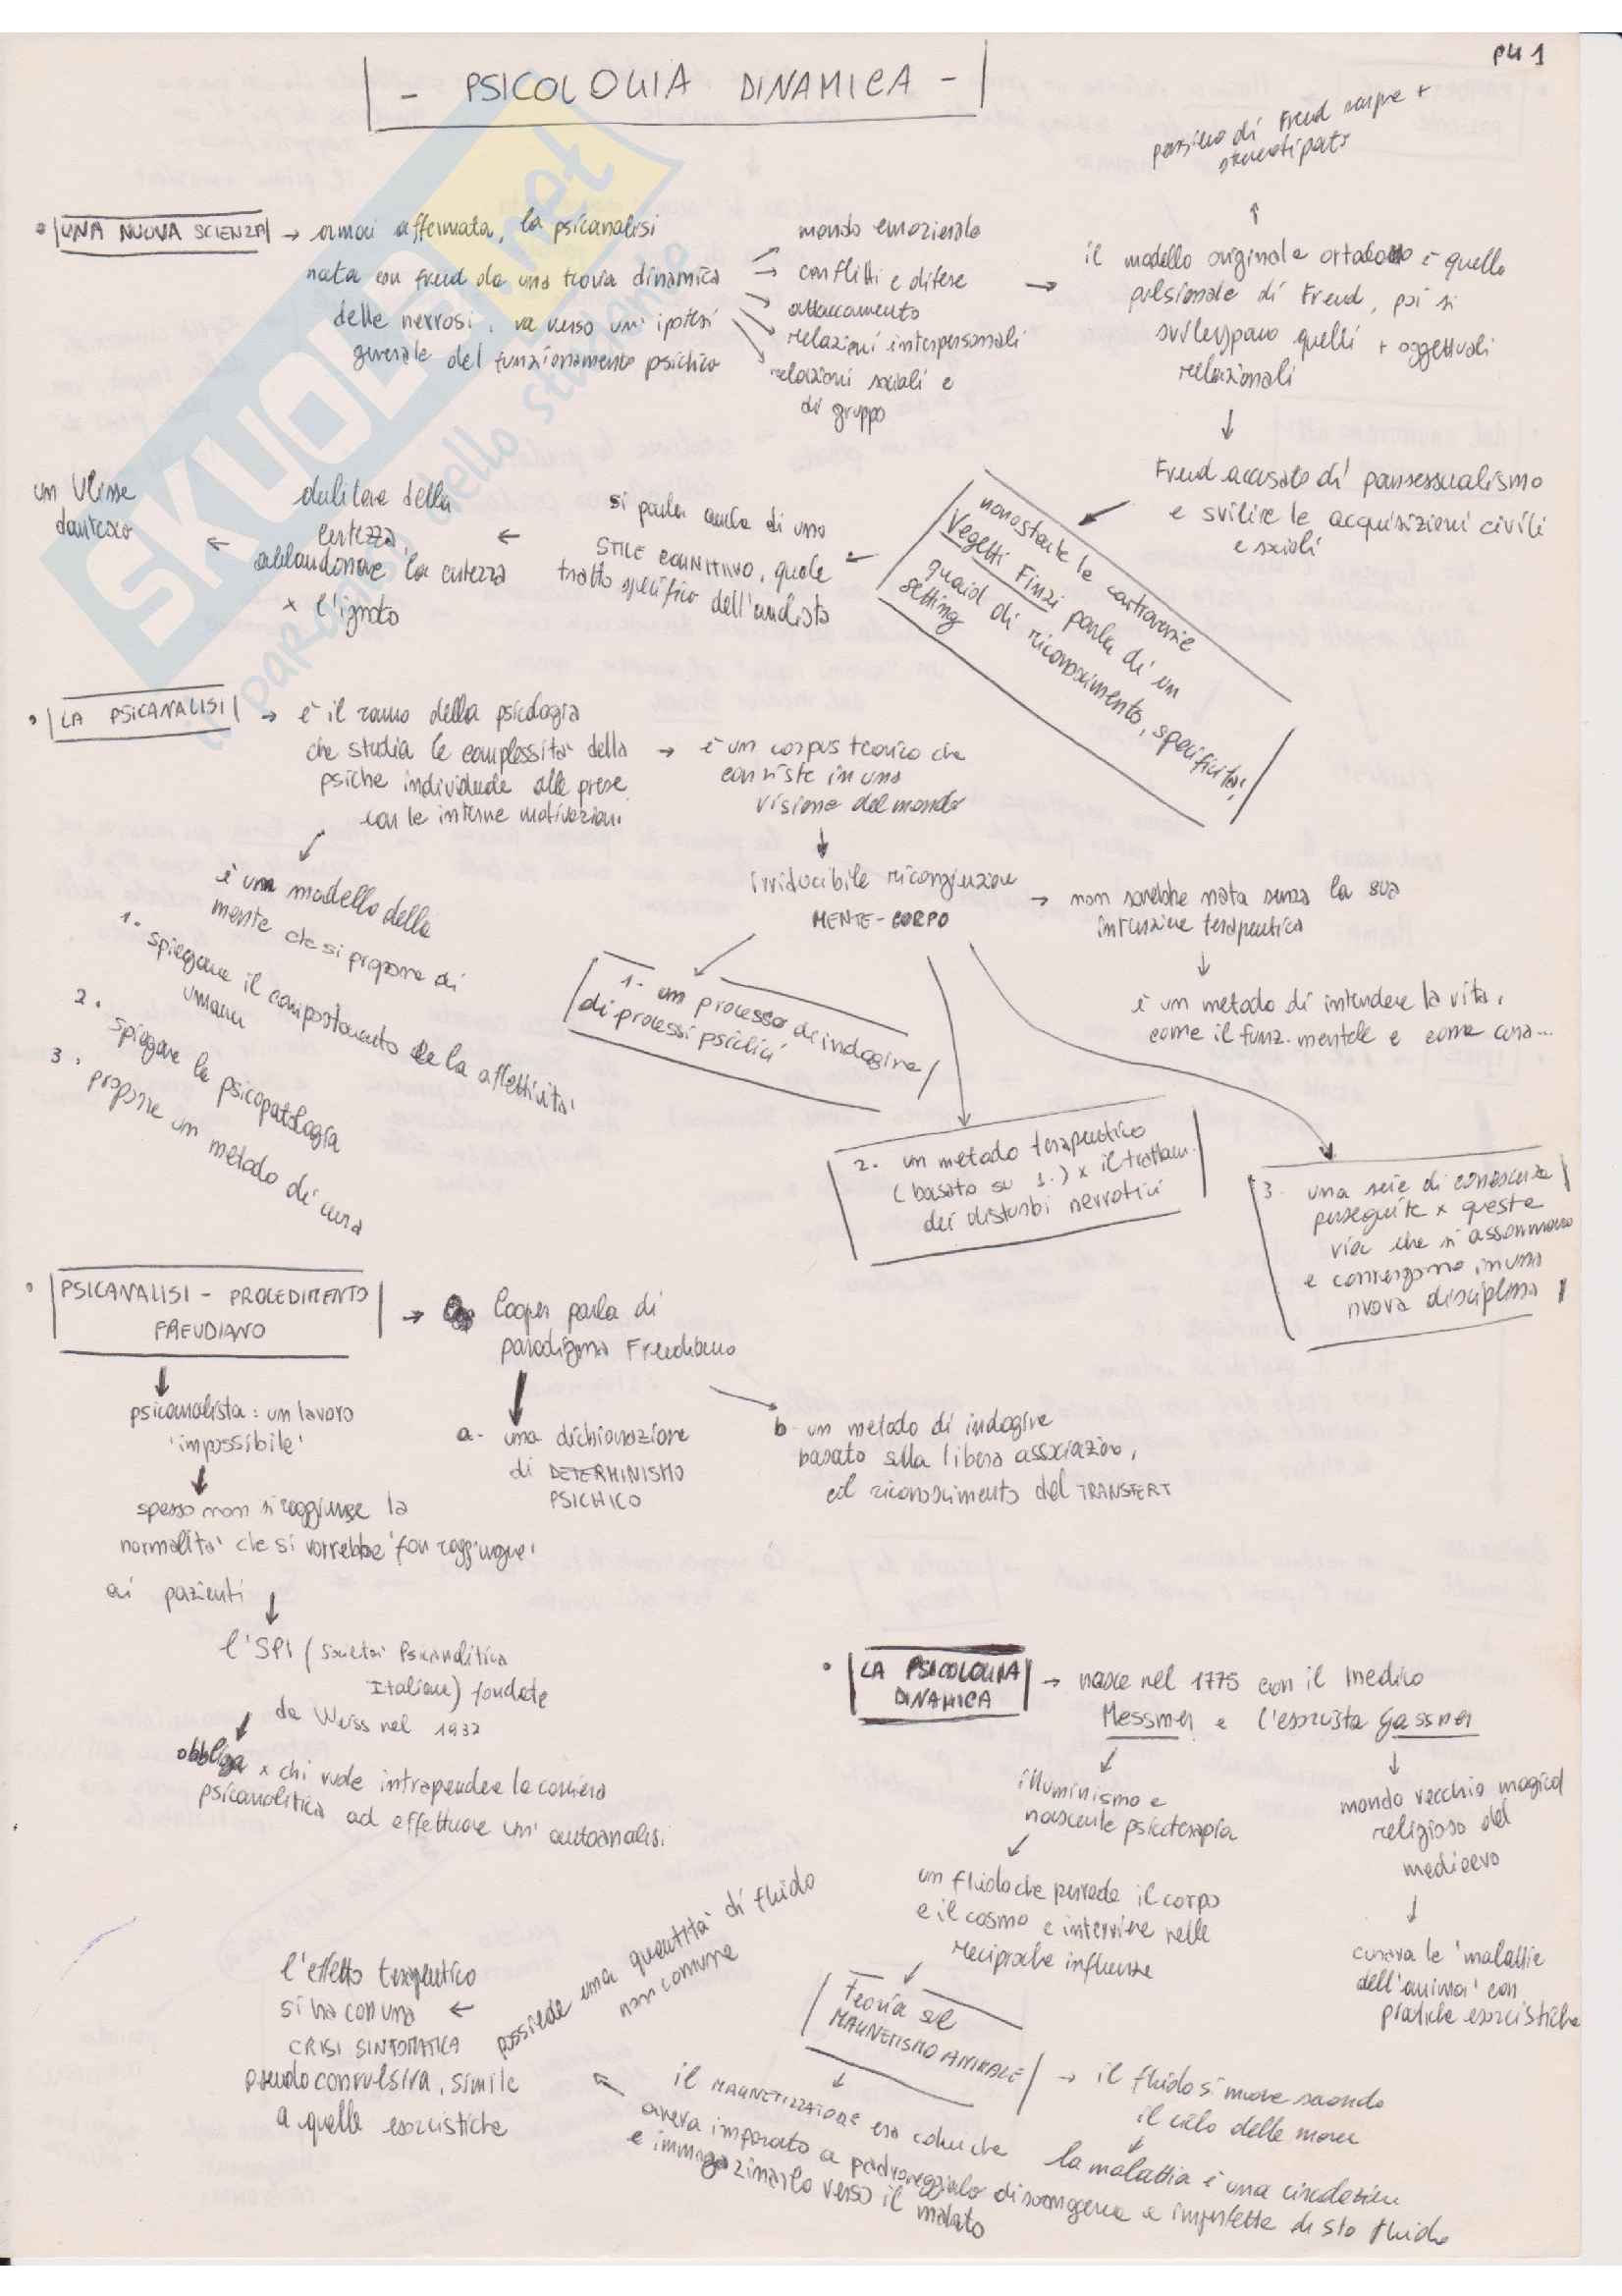 pu 1
- PSICOLOGIA DINAMICA -
pensiero di Freud sempre +
stereotipato
UNA NUOVA SCIENZA → ormai affermata, la psicanalisi
nata con Freud da una teoria dinamica
delle nevrosi, va verso un' ipotesi
generale del funzionamento psichico
mondo emozionale
→ conflitti e difese
attaccamento
relazioni interpersonali
relazioni sociali e
di gruppo
→ il modello originale ortodosso è quello
pulsionale di Freud, poi si
sviluppano quelli + oggettuali
relazionali
Freud accusato di pansessualismo
e svilire le acquisizioni civili
e sociali
nonostante le controversie
Vegetti Finzi parla di un
quaid di riconoscimento, specificità:
setting
si parla anche di uno
STILE COGNITIVO, quale
tratto specifico dell'analista
← dubitare della
certezza,
abbandonare la certezza
x l'ignoto
← un Ulisse
dantesco
LA PSICANALISI → è il ramo della psicologia
che studia le complessità della
psiche individuale alle prese
con le interne motivazioni
→ è un corpus teorico che
consiste in una
visione del mondo
è un modello della
mente che si propone di
1. spiegare il comportamento e la affettività
umana
2. spiegare la psicopatologia
3. proporre un metodo di cura
irriducibile ricongiunzione
MENTE-CORPO
→ non sarebbe nata senza la sua
intuizione terapeutica
è un metodo di intendere la vita,
come il funz. mentale e come cura...
1. un processo di indagine
di processi psichici
2. un metodo terapeutico
(basato su 1.) x il trattam.
dei disturbi nevrotici
3. una serie di conoscenze
perseguite x questa
via che si assommano
e convergono in una
nuova disciplina
PSICANALISI - PROCEDIMENTO
FREUDIANO
→ Cooper parla di
paradigma Freudiano
psicanalista: un lavoro
'impossibile'
a- una dichiarazione
di DETERMINISMO
PSICHICO
b- un metodo di indagine
basato sulla libera associazione,
ed riconoscimento del TRANSFERT
spesso non si raggiunge la
normalità che si vorrebbe 'far raggiungere'
ai pazienti
l'SPI (Società Psicanalitica
Italiana) fondata
da Weiss nel 1932
obbliga x chi vuole intraprendere la carriera
psicanalitica ad effettuare un' autoanalisi
LA PSICOLOGIA
DINAMICA
→ nasce nel 1775 con il medico
Messmer e l'esorcista Gassner
illuminismo e
nascente psicoterapia
mondo vecchio magico/
religioso del
medioevo
un fluido che pervade il corpo
e il cosmo e interviene nelle
reciproche influenze
curava le 'malattie
dell'anima' con
pratiche esorcistiche
Teoria sul
MAGNETISMO ANIMALE
→ il fluido si muove secondo
il ciclo delle maree
la malattia è una circolazione
disomogenea e imperfetta di sto fluido
il MAGNETIZZATORE era colui che
aveva imparato a padroneggiarlo
e immagazzinarlo verso il malato
possiede una quantità di fluido
non comune
l'effetto terapeutico
si ha con una ←
CRISI SINTOMATICA
pseudoconvulsiva, simile
a quelle esorcistiche
SKUOLA.net